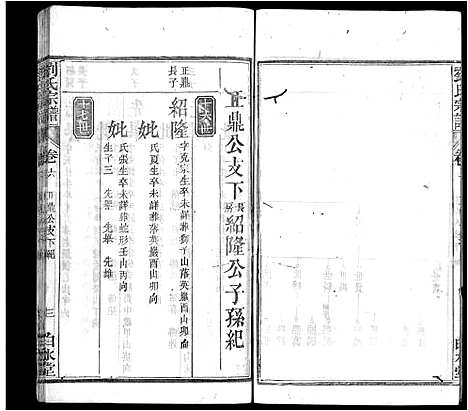 正鼎公支下長房紹隆公子孫紀
十六世
正鼎長子
紹隆
字克宗生卒未詳葬獅子山落英嚴酉山卯向
妣
氏夏生卒未詳葬英嚴酉山卯向
妣
氏張生卒未詳葬蛇形壬山丙向
生子三 先榮 先舉 先雄
十七世
劉氏宗譜
卷六
正鼎公支下紀
三
白水堂